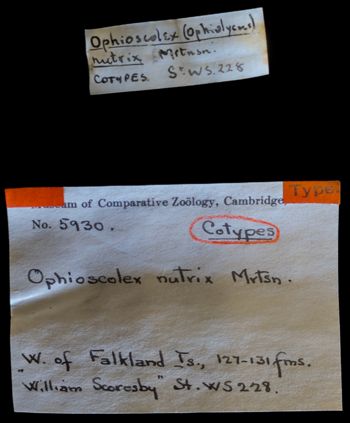 Ophioscolex (Ophiolycus)
nutrix Mrtnsn.
COTYPES. St. WS. 228
Type.
Museum of Comparative Zoölogy, Cambridge,
No. 5930.
Cotypes
Ophioscolex nutrix Mrtsn.
W. of Falkland Is., 127-131 fms.
"William Scoresby" St. WS 228.